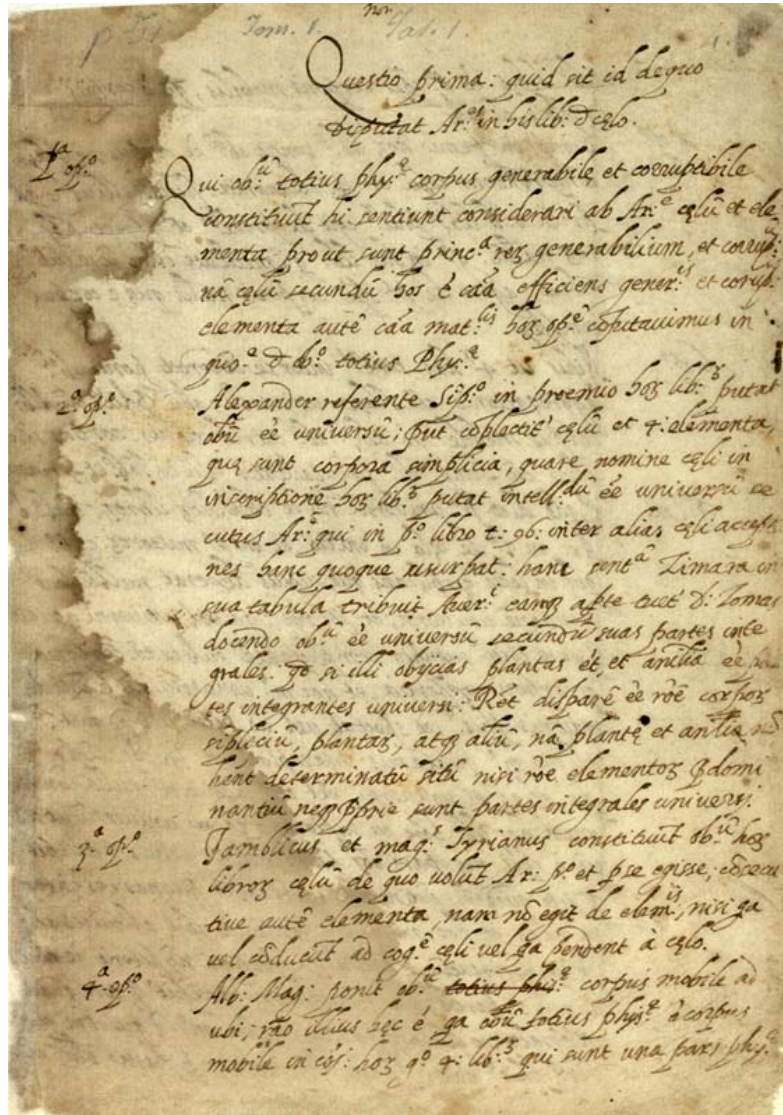 Tom. 1. Tat. 1. 1.
Questio prima: quid sit id de quo
disputat Ar:es in his lib: d cęlo.
1a op:o
Qui ob:ũ totius phy:ę corpus generabile et corruptibile
constituũt hi sentiunt considerari ab Ar:e cęlũ et ele
menta prout sunt princ:a reȝ generabilium, et corrup:
nã cęlũ secundũ hos ẽ cãa efficiens gener:is et corup:
elementa autẽ cãa mat:lis hoȝ op:ẽ cõputavimus in
quo:e d ob:o totius Phy:ę
2a op:o
Alexander referente Sĩp:o in proemio hoȝ lib: putat
obũ ẽe universũ; put cõplectit' cęlũ et 4: elementa,
quę sunt corpora simplicia, quare nomine cęli in
inscriptione hoȝ lib: putat intell:dũ ẽe universũ se
cutus Ar:ẽ qui in p:o libro t: 96: inter alias cęli accep
nes hanc quoque usurpat: hanc sent:ã Zimara in
sua tabula tribuit Aver:i eamq apte tuet' D: Tomas
docendo ob:ũ ẽe universũ secundũ suas partes inte
grales. qd si illi obijcias plantas ẽt, et anĩlia ẽe
tes integrantes universi: Rẽt disparẽ ẽe rõe corpoȝ
sĩpliciũ, plantaȝ, atqȝ aliũ, nã plantę et anĩlia nõ
hẽnt determinatũ sitũ nisi rõe elementoȝ pdomi
nantiũ neqȝ pprie sunt partes integrales universi.
3a op:o
Jamblicus et mag:s Syrianus constituũt ob:ũ hoȝ
libroȝ cęlũ de quo volũt Ar: p:o et p se egisse, cõsecu
tive autẽ elementa, nam nõ egit de elem:is, nisi qa
vel cõducũt ad cog:ẽ cęli vel qa pendent à cęlo.
4a op:o
Alb: Mag: ponit ob:ũ totius phi:ę corpus mobile ad
ubi; rão illius hęc ẽ qa obũ totius phys:ę ẽ corpus
mobile in cõi: hoȝ 4: lib: qui sunt una pars phy:ę